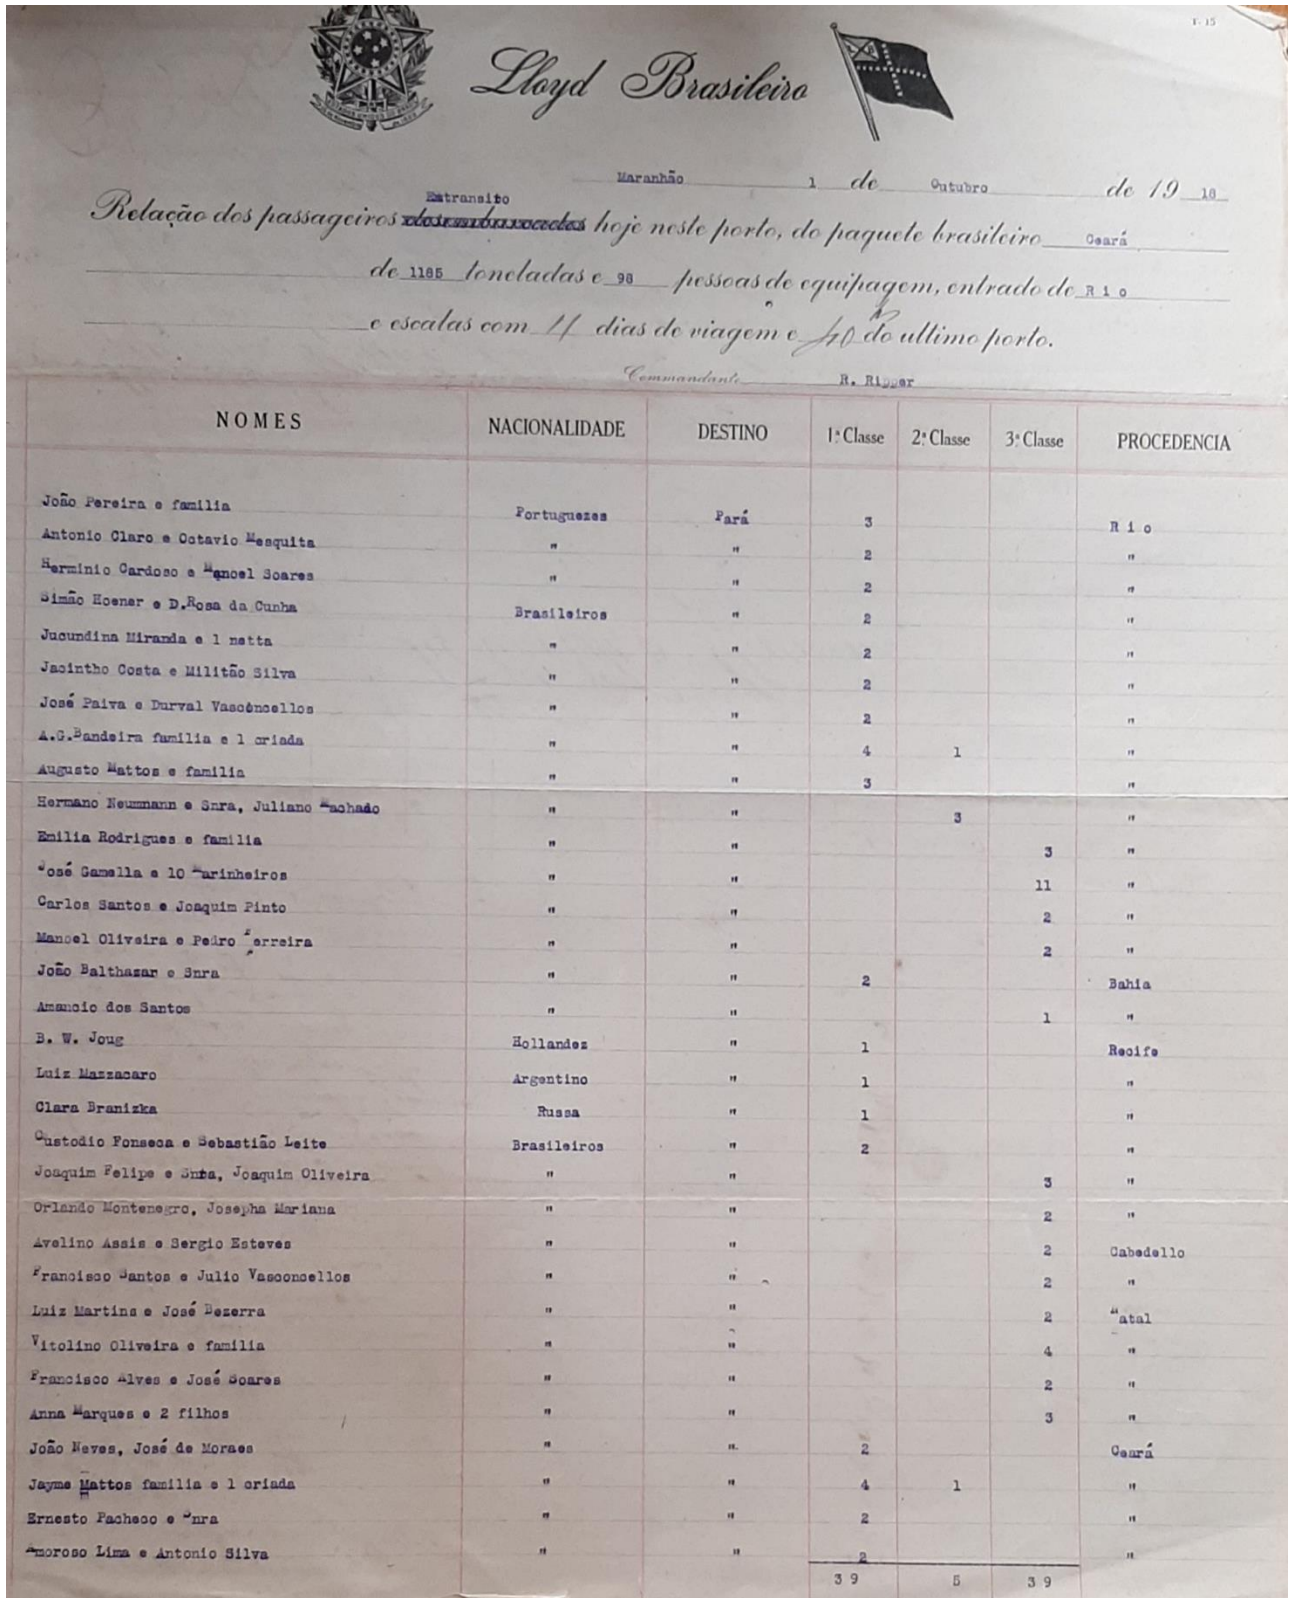 T. 15
Lloyd Brasileiro
Maranhão 1 de Outubro de 19 18
Emtransito
Relação dos passageiros desembarcados hoje neste porto, do paquete brasileiro Ceará
de 1185 toneladas e 98 pessoas de equipagem, entrado de Rio
e escalas com 11 dias de viagem e 40 do ultimo porto.
Commandante R. Ripper
NOMES NACIONALIDADE DESTINO 1ª Classe 2ª Classe 3ª Classe PROCEDENCIA
João Pereira e familia Portuguezes Pará 3 Rio
Antonio Claro e Octavio Mesquita " " 2 "
Herminio Cardoso e Manoel Soares " " 2 "
Simão Hoener e D.Rosa da Cunha Brasileiros " 2 "
Jucundina Miranda e 1 netta " " 2 "
Jacintho Costa e Militão Silva " " 2 "
José Paiva e Durval Vasconcellos " " 2 "
A.G.Bandeira familia e 1 criada " " 4 1 "
Augusto Mattos e familia " " 3 "
Hermano Neumnann e Snra, Juliano Machado " " 3 "
Emilia Rodrigues e familia " " 3 "
José Gamella e 10 Marinheiros " " 11 "
Carlos Santos e Joaquim Pinto " " 2 "
Manoel Oliveira e Pedro Ferreira " " 2 "
João Balthazar e Snra " " 2 Bahia
Amancio dos Santos " " 1 "
B. W. Joug Hollandez " 1 Recife
Luiz Mazzacaro Argentino " 1 "
Clara Branizka Russa " 1 "
Custodio Fonseca e Sebastião Leite Brasileiros " 2 "
Joaquim Felipe e Snra, Joaquim Oliveira " " 3 "
Orlando Montenegro, Josepha Mariana " " 2 "
Avelino Assis e Sergio Esteves " " 2 Cabedello
Francisco Santos e Julio Vasconcellos " " 2 "
Luiz Martins e José Bezerra " " 2 Natal
Vitolino Oliveira e familia " " 4 "
Francisco Alves e José Soares " " 2 "
Anna Marques e 2 filhos " " 3 "
João Neves, José de Moraes " " 2 Ceará
Jayme Mattos familia e 1 criada " " 4 1 "
Ernesto Pacheco e Snra " " 2 "
Amoroso Lima e Antonio Silva " " 2 "
39 5 39